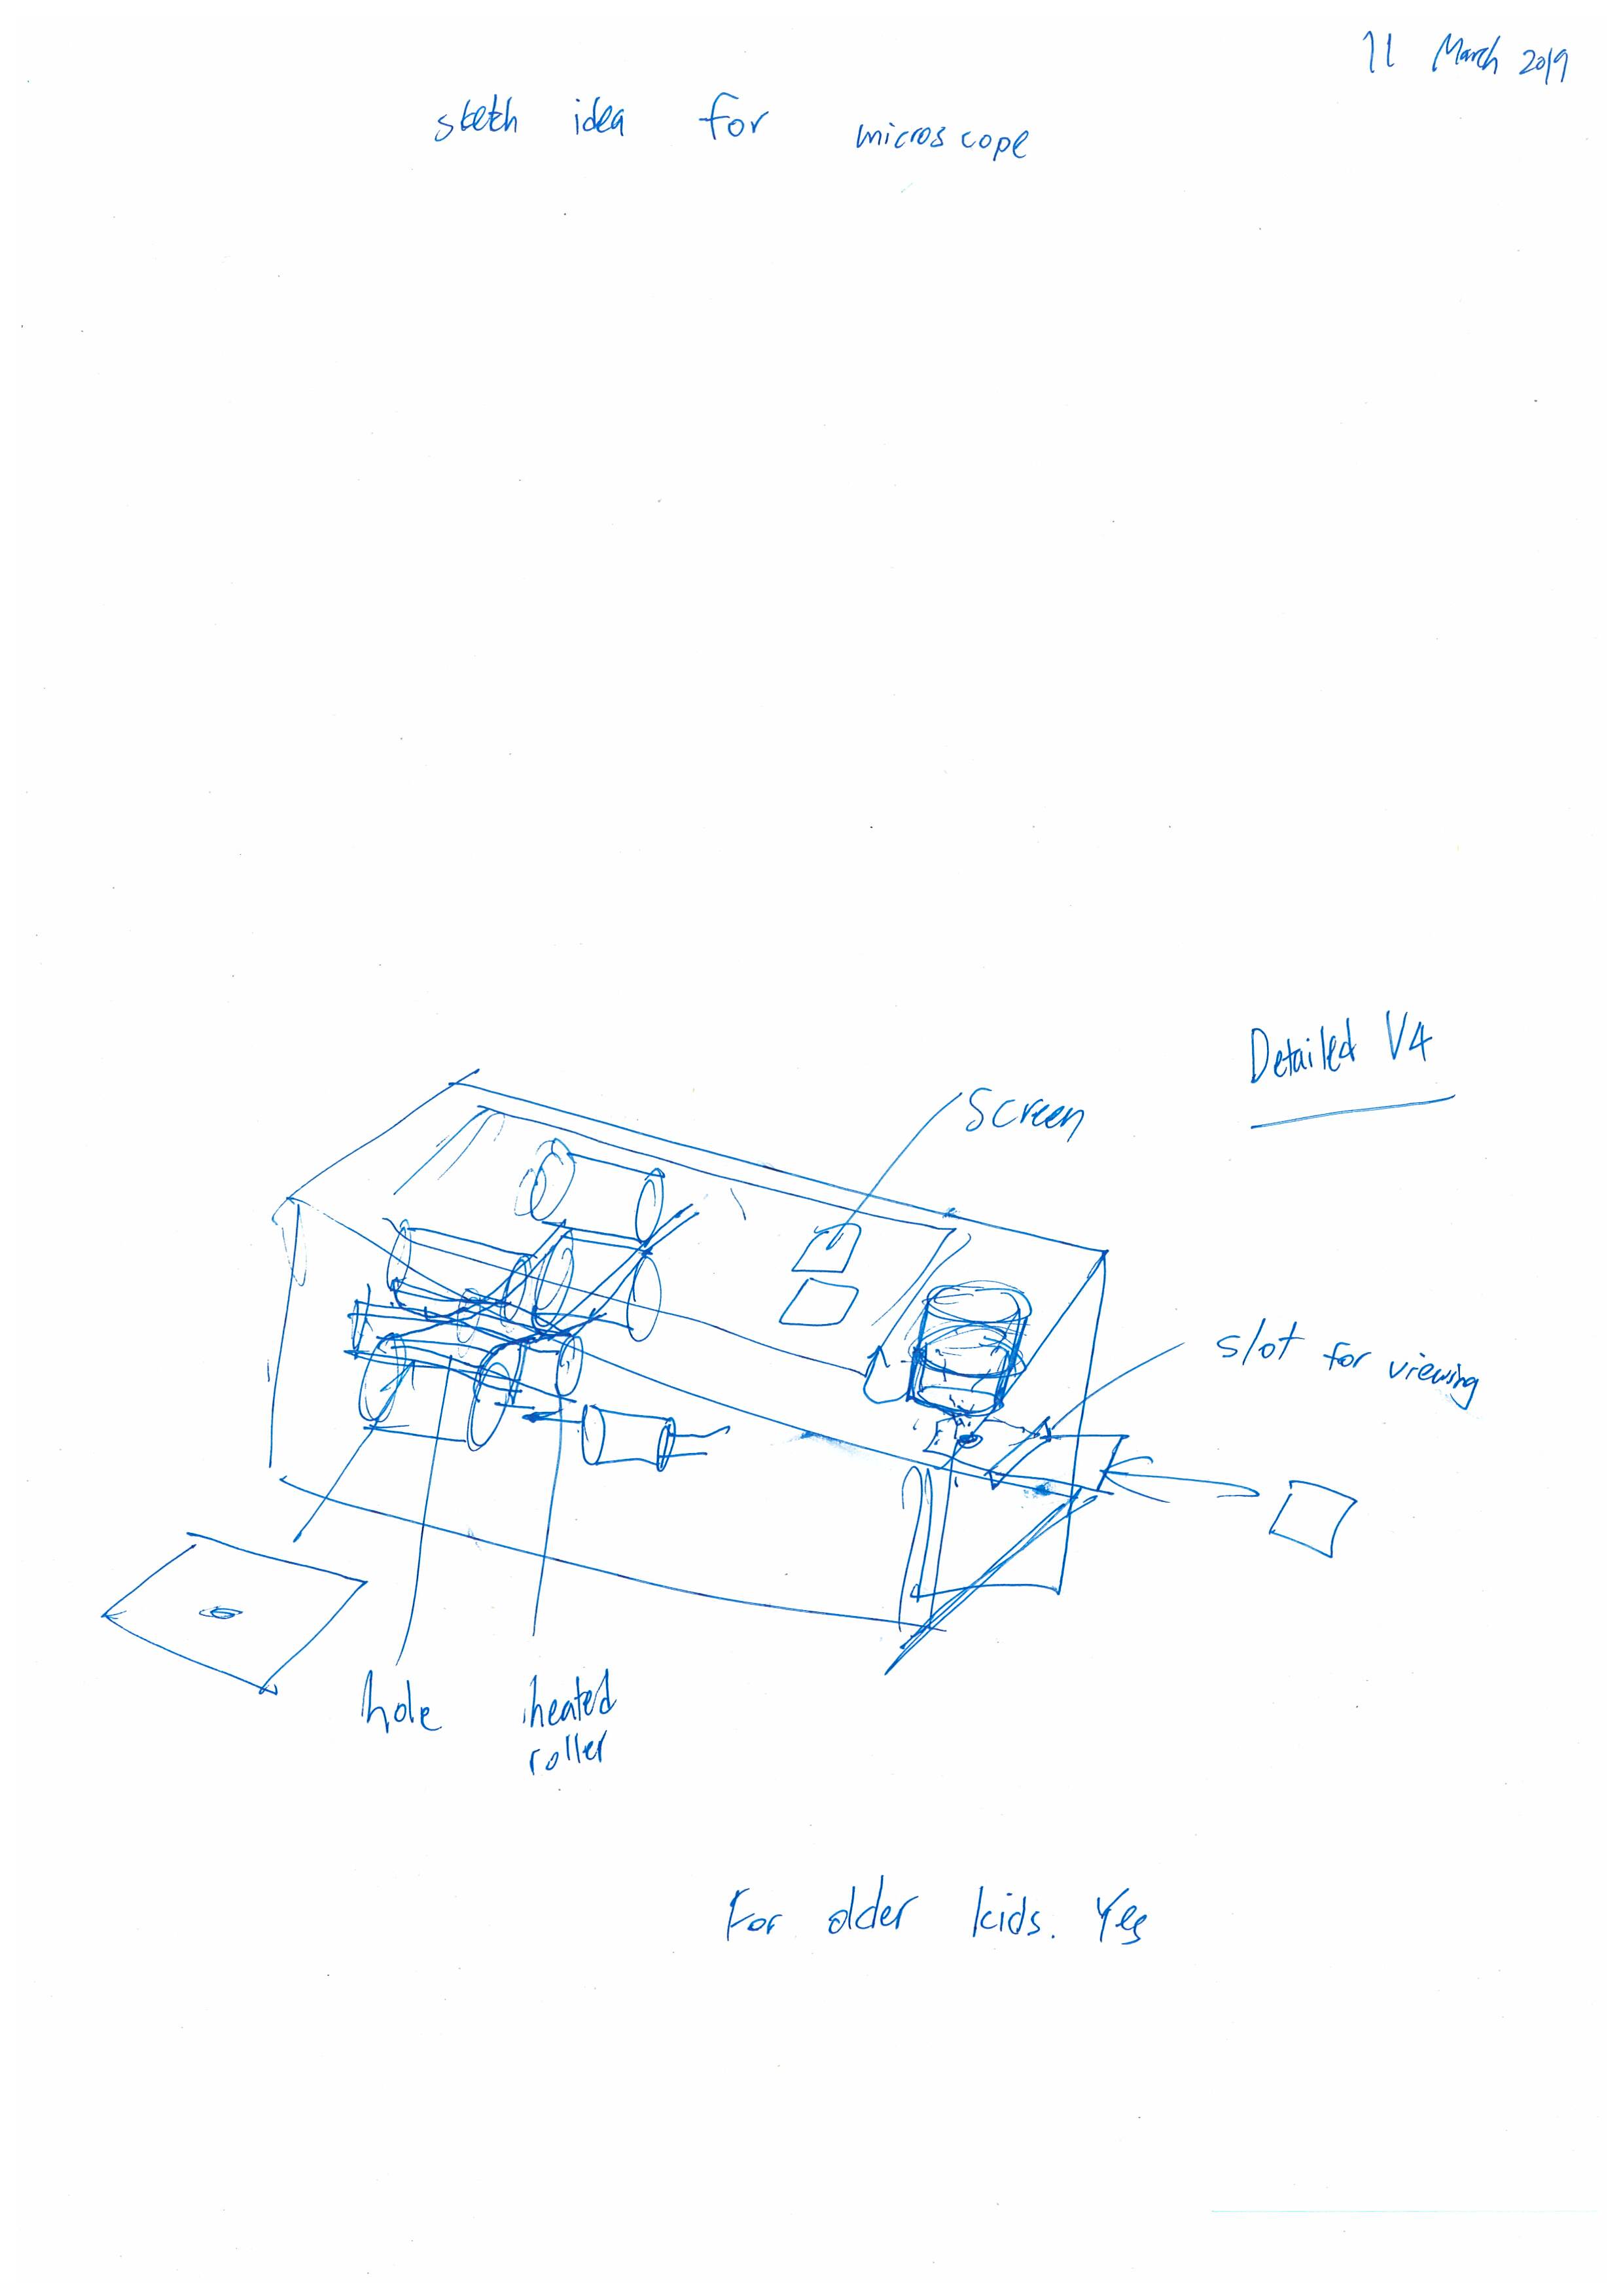 11 March 2019
sketch idea for microscope
Detailed V4
Screen
slot for viewing
hole
heated
roller
For older kids. Yes